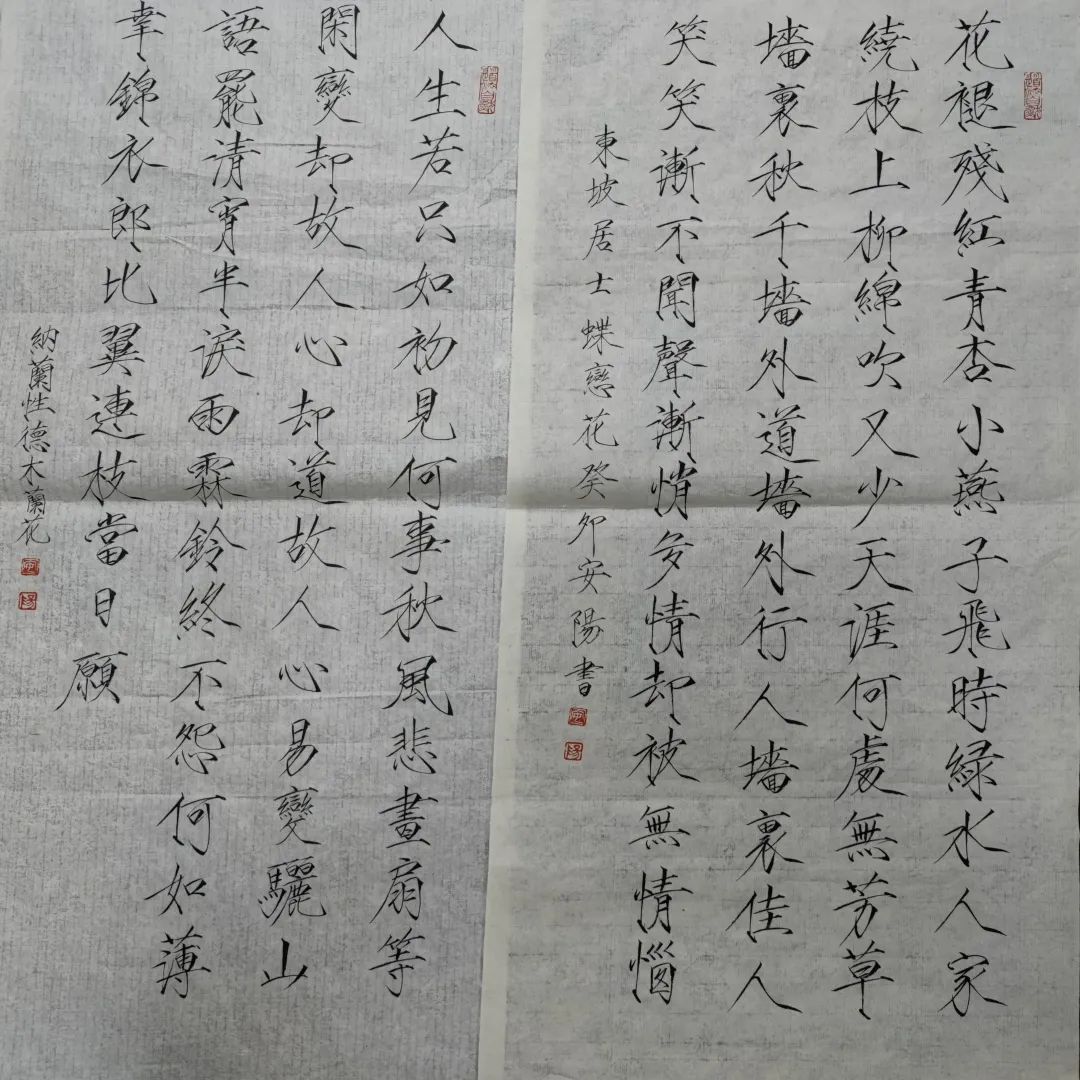 花褪殘紅青杏小燕子飛時緑水人家
繞枝上柳綿吹又少天涯何處無芳草
墻裏秋千墻外道墻外行人墻裏佳人
笑笑漸不聞聲漸悄多情却被無情惱
東坡居士蝶戀花癸卯安陽書
人生若只如初見何事秋風悲畫扇等
閑變却故人心却道故人心易變驪山
語罷清宵半淚雨霖鈴終不怨何如薄
幸錦衣郎比翼連枝當日願
納蘭性德木蘭花